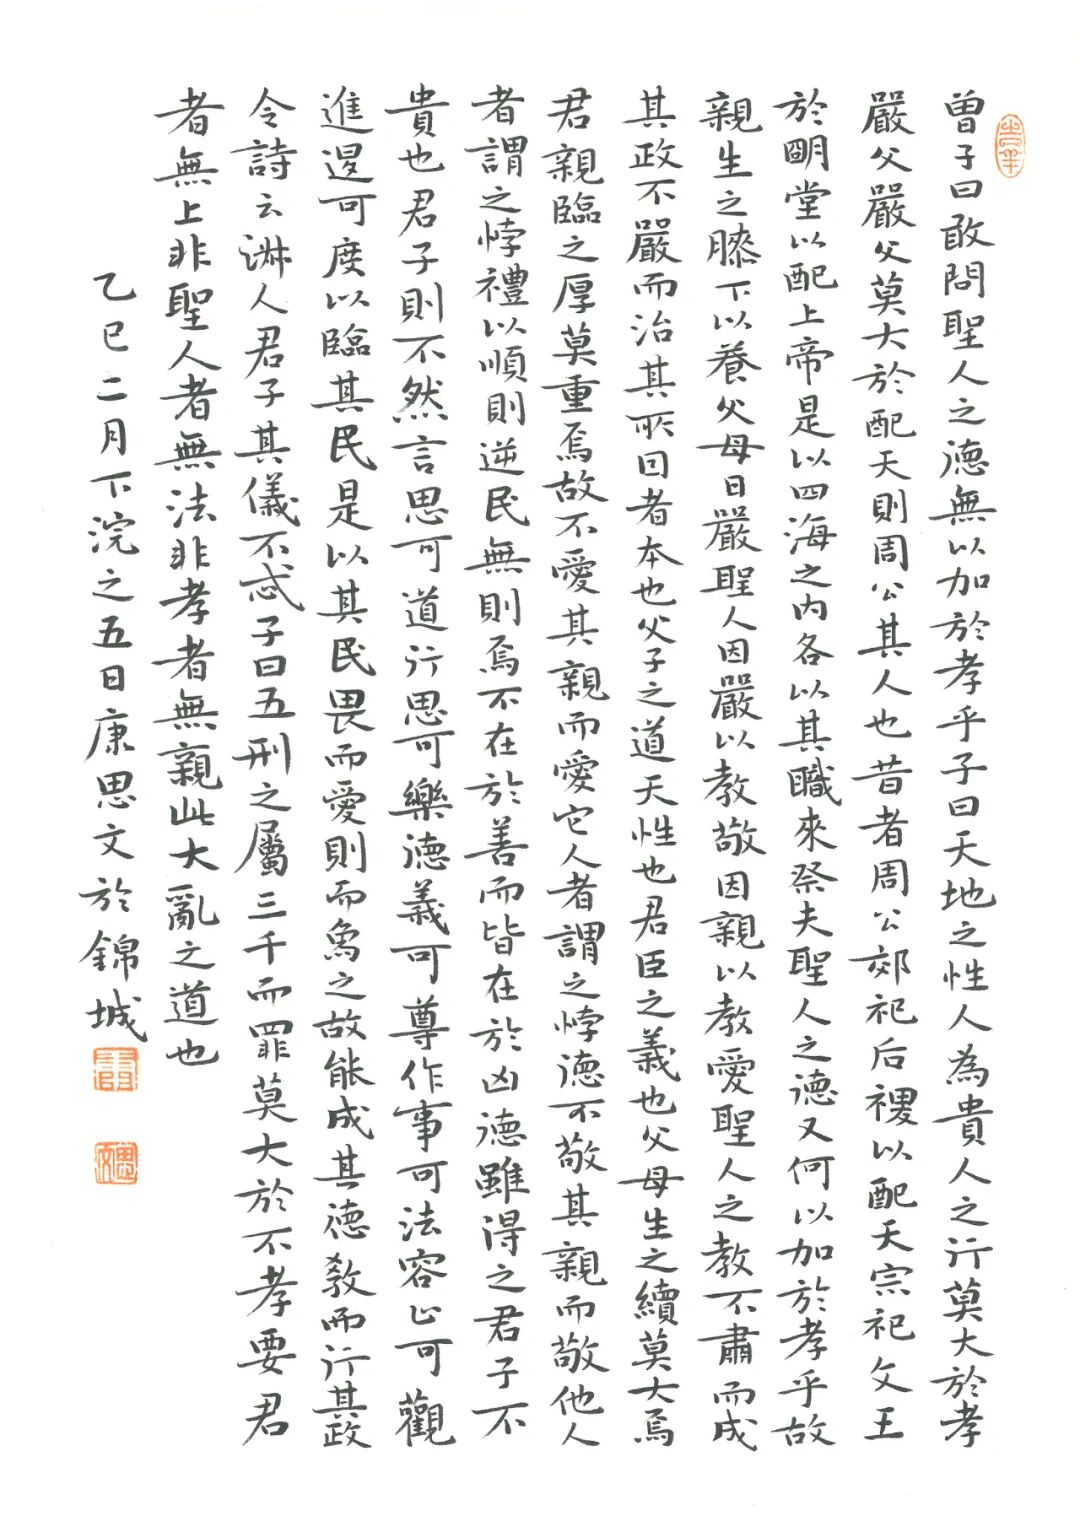 曾子曰敢問聖人之德無以加於孝乎子曰天地之性人為貴人之行莫大於孝
嚴父嚴父莫大於配天則周公其人也昔者周公郊祀后稷以配天宗祀文王
於明堂以配上帝是以四海之內各以其職來祭夫聖人之德又何以加於孝乎故
親生之膝下以養父母日嚴聖人因嚴以教敬因親以教愛聖人之教不肅而成
其政不嚴而治其所因者本也父子之道天性也君臣之義也父母生之續莫大焉
君親臨之厚莫重焉故不愛其親而愛它人者謂之悖德不敬其親而敬他人
者謂之悖禮以順則逆民無則焉不在於善而皆在於凶德雖得之君子不
貴也君子則不然言思可道行思可樂德義可尊作事可法容止可觀
進退可度以臨其民是以其民畏而愛則而象之故能成其德教而行其政
令詩云淋人君子其儀不忒子曰五刑之屬三千而罪莫大於不孝要君
者無上非聖人者無法非孝者無親此大亂之道也
乙巳二月下浣之五日康思文於錦城